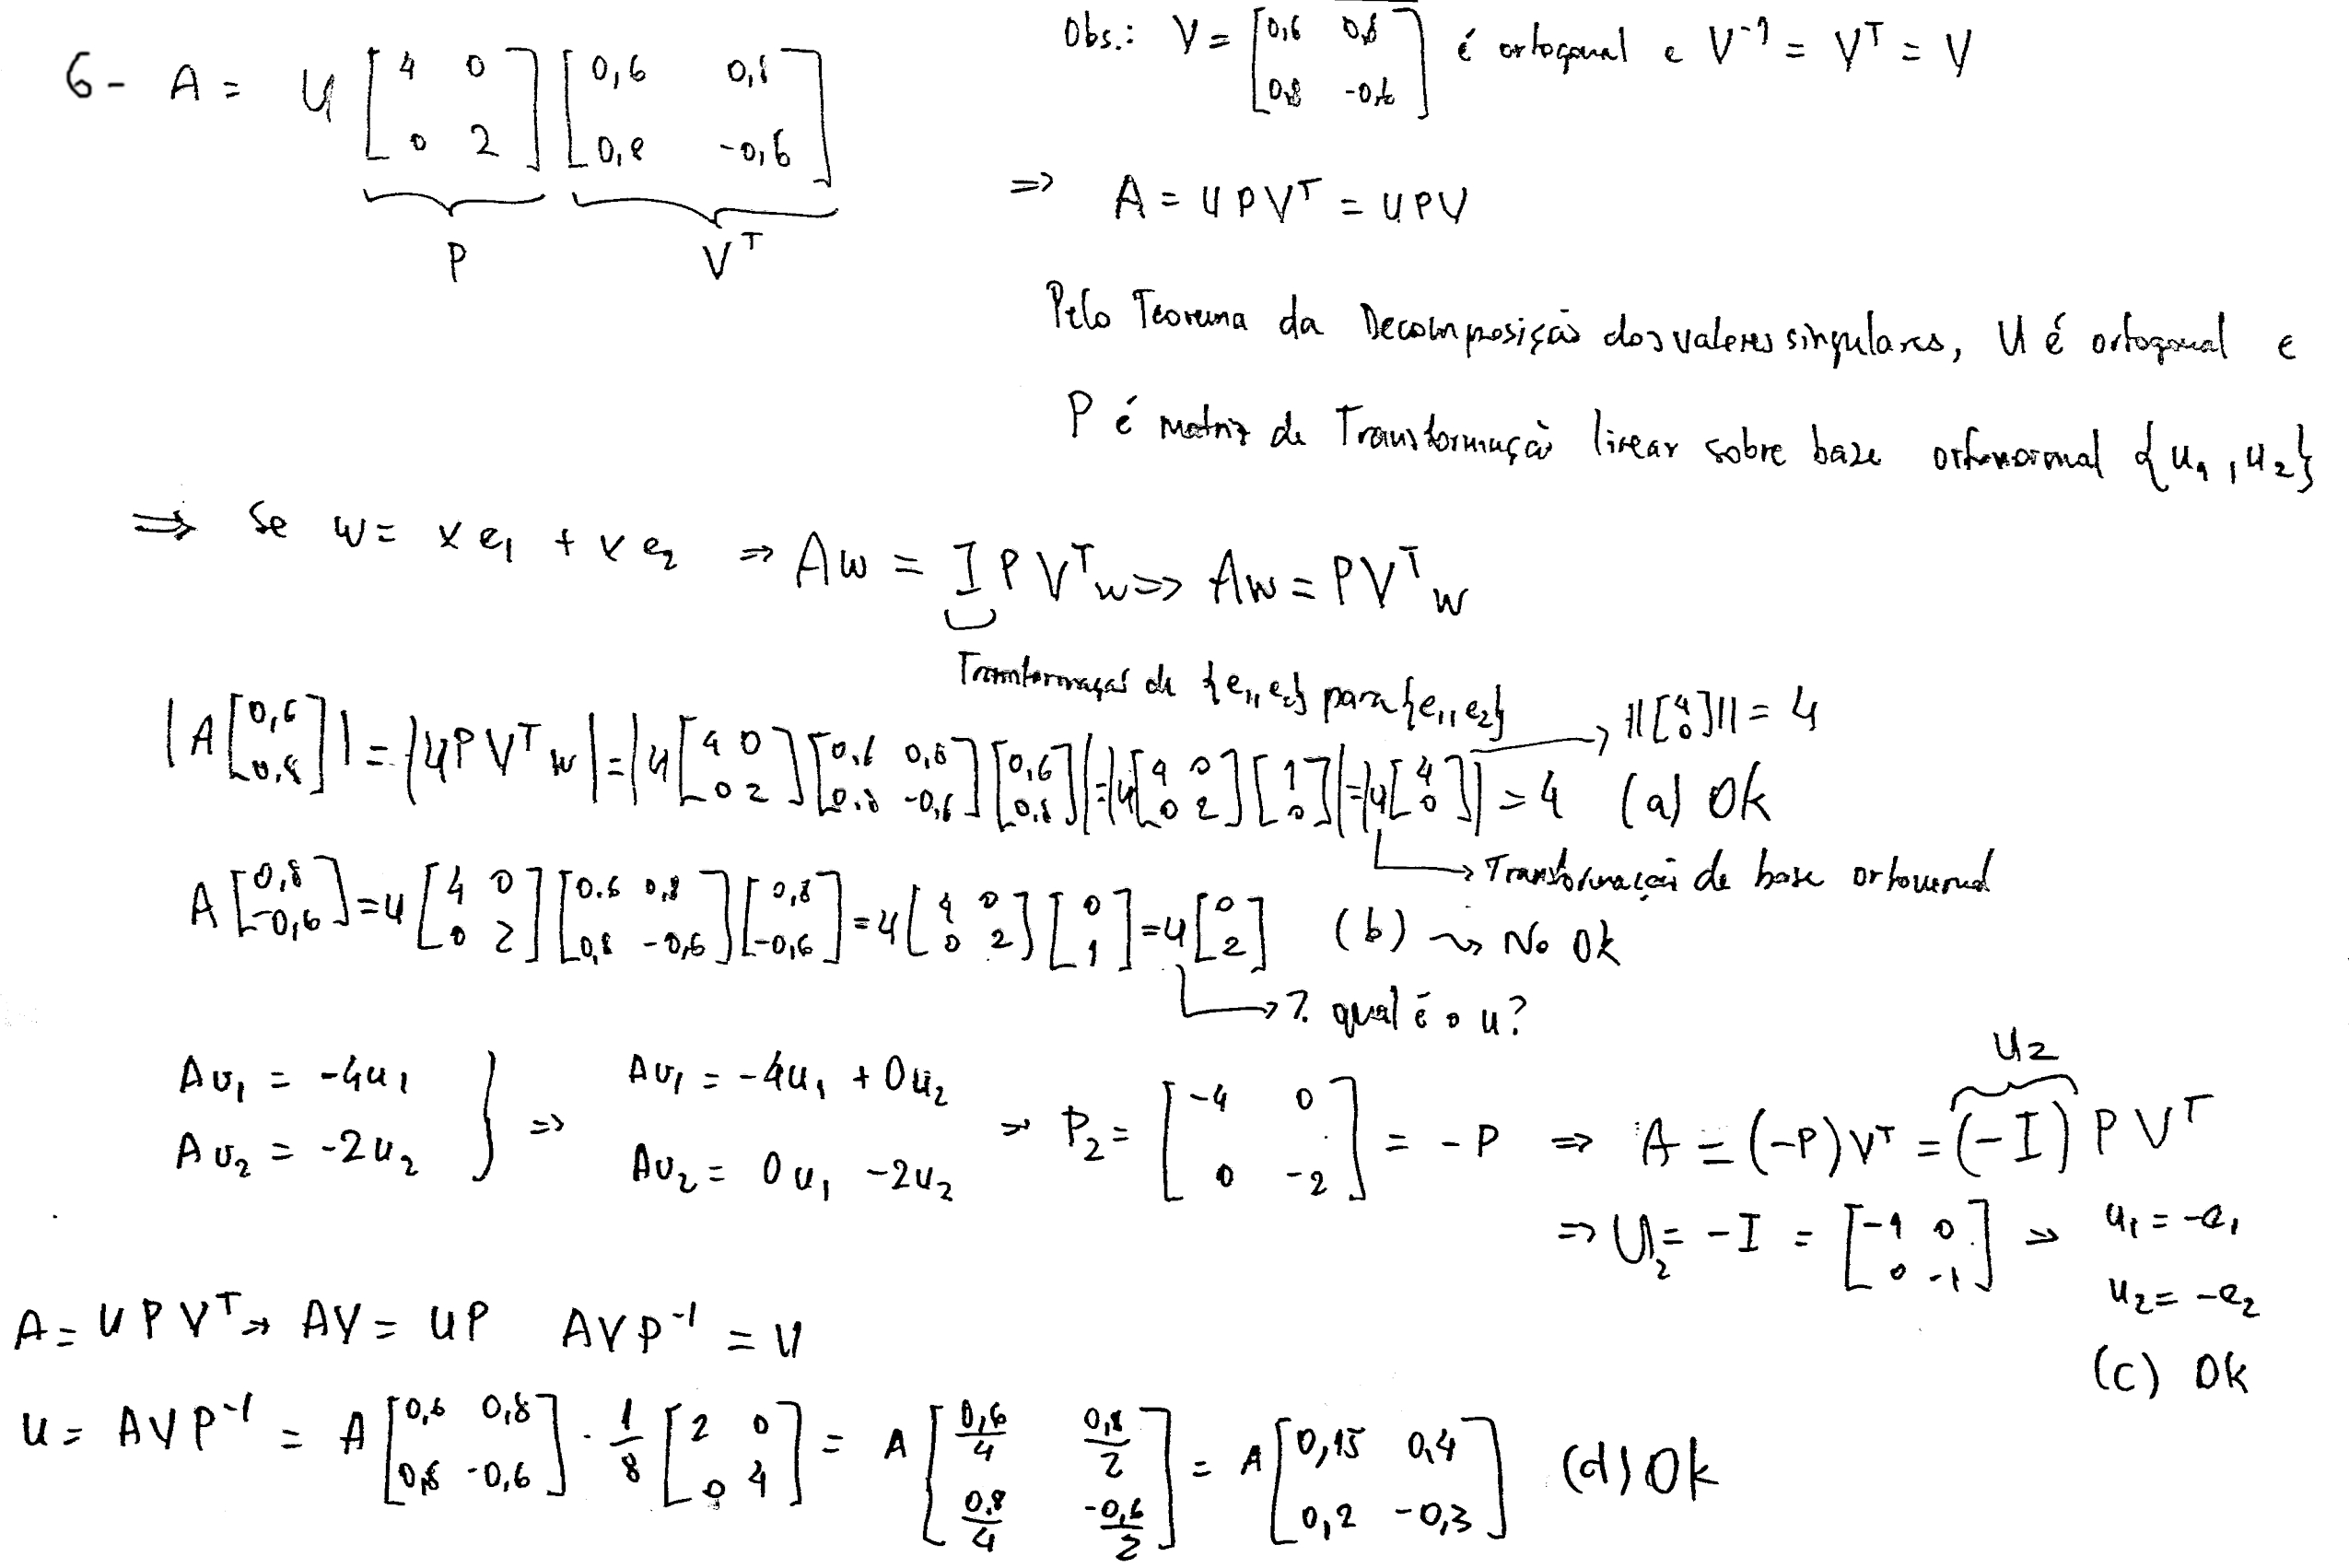 6- A = U [4 0; 0 2] [0,6 0,8; 0,8 -0,6]
P
V^T
Obs.: V = [0,6 0,8; 0,8 -0,6] é ortogonal e V^-1 = V^T = V
=> A = U P V^T = U P V
Pelo Teorema da Decomposição dos valores singulares, U é ortogonal e
P é matriz de Transformação linear sobre base ortonormal {u1, u2}
=> Se w = x e1 + y e2 => Aw = I P V^T w => Aw = P V^T w
Transformação de {e1, e2} para {e1, e2}
|A [0,6; 0,8]| = |U P V^T w| = |U [4 0; 0 2] [0,6 0,8; 0,8 -0,6] [0,6; 0,8]| = |U [4 0; 0 2] [1; 0]| = |U [4; 0]| = 4 (a) Ok
→ ||[4; 0]|| = 4
→ Transformação de base ortonormal
A [0,8; -0,6] = U [4 0; 0 2] [0.6 0,8; 0,8 -0,6] [0,8; -0,6] = U [4 0; 0 2] [0; 1] = U [0; 2] (b) ~> No Ok
→ ? qual é o u?
Av1 = -4u1
Av2 = -2u2
} =>
Av1 = -4u1 + 0u2
Av2 = 0u1 - 2u2
=> P2 = [-4 0; 0 -2] = -P => A = (-P) V^T = (-I) P V^T
U2
=> U2 = -I = [-1 0; 0 -1] => u1 = -e1
u2 = -e2
(c) Ok
A = U P V^T => AV = UP AVP^-1 = U
U = AVP^-1 = A [0,6 0,8; 0,8 -0,6] · 1/8 [2 0; 0 4] = A [0,6/4 0,8/2; 0,8/4 -0,6/2] = A [0,15 0,4; 0,2 -0,3] (d) Ok